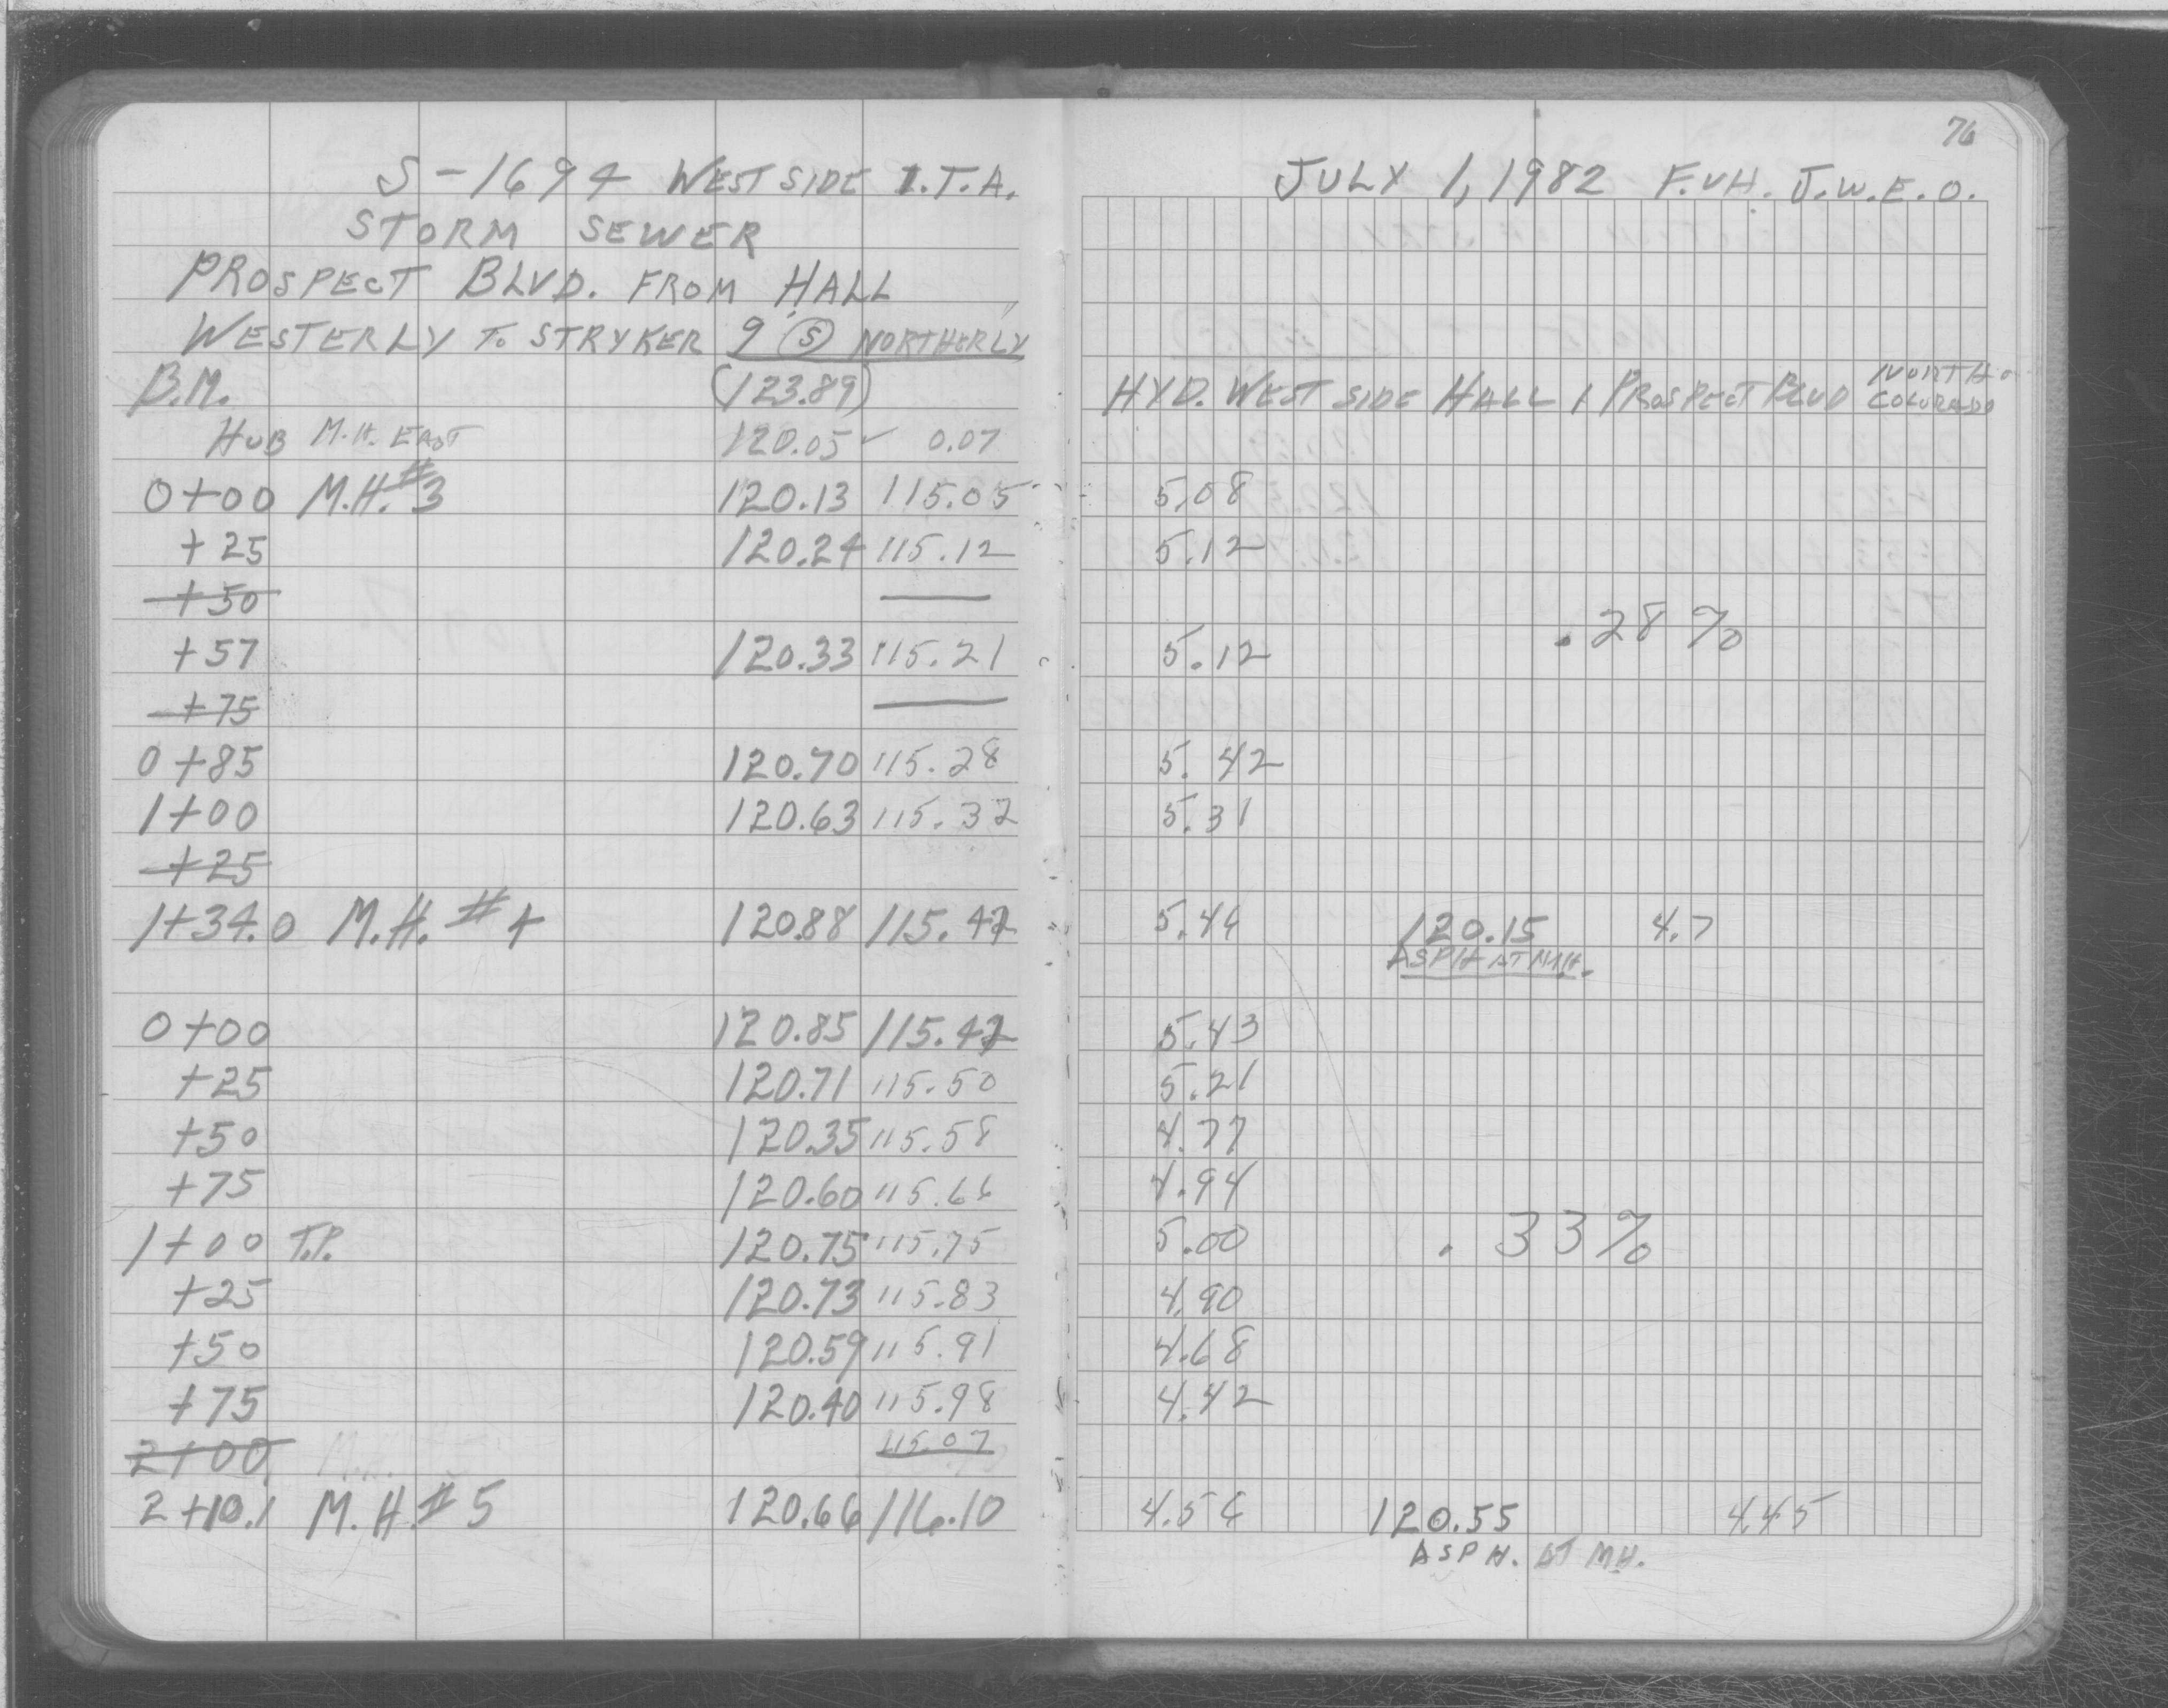 76
S-1694 WEST SIDE I.T.A. JULY 1, 1982 F.VH. J.W.E.O.
STORM SEWER
PROSPECT BLVD. FROM HALL
WESTERLY TO STRYKER 9 (S) NORTHERLY
B.M. (123.89) HYD. WEST SIDE HALL 1 PROSPECT BLVD NORTH OF COLORADO
HUB M.H. EAST 120.05 ✓ 0.07
0+00 M.H.#3 120.13 115.05 5.08
+25 120.24 115.12 5.12
+50 —
.28%
+57 120.33 115.21 5.12
+75 —
0+85 120.70 115.28 5.42
1+00 120.63 115.32 5.31
+25
1+34.0 M.H. #4 120.88 115.42 5.46 120.15 4.7
ASPH AT M.H.
0+00 120.85 115.42 5.43
+25 120.71 115.50 5.21
+50 120.35 115.58 4.77
+75 120.60 115.66 4.94
1+00 T.P. 120.75 115.75 5.00 .33%
+25 120.73 115.83 4.90
+50 120.59 115.91 4.68
+75 120.40 115.98 4.42
2+00 115.07
2+10.1 M.H.#5 120.66 116.10 4.56 120.55 4.45
ASPH. AT MH.